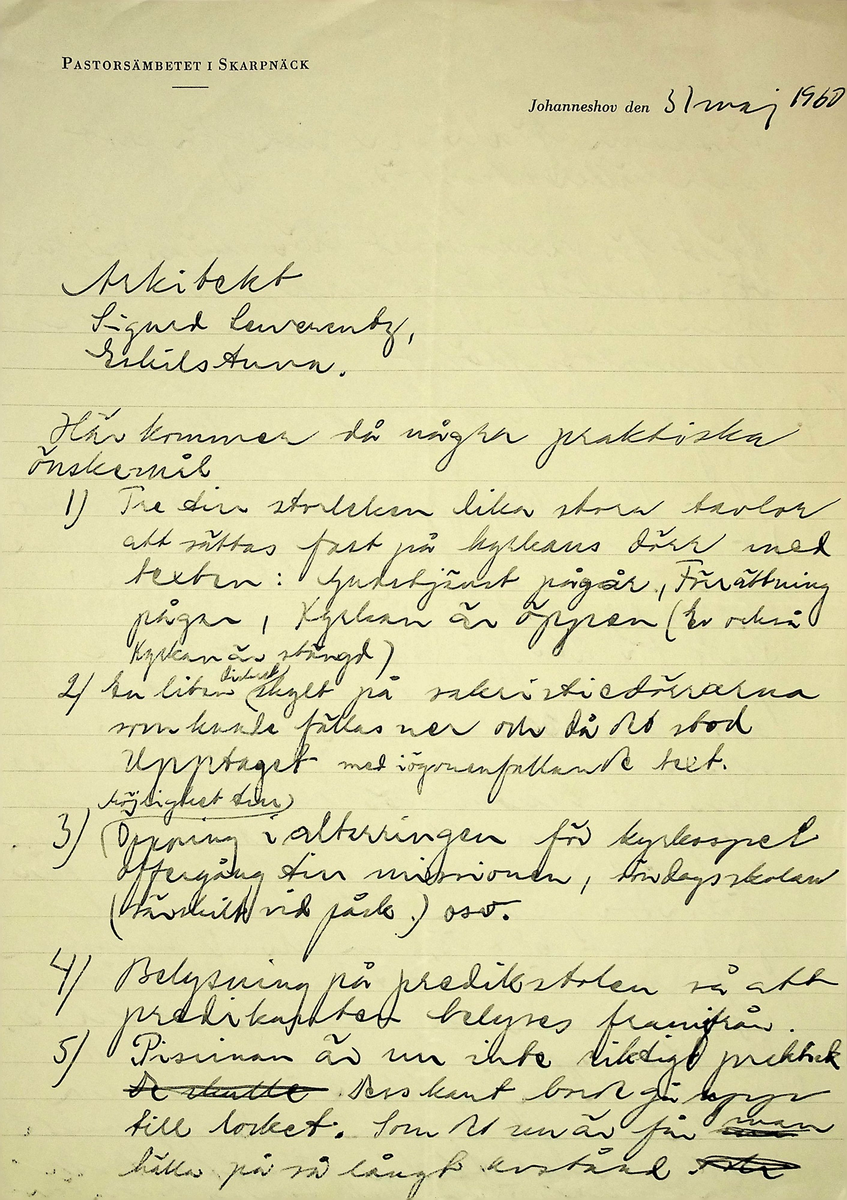 PASTORSÄMBETET I SKARPNÄCK
Johanneshov den 31 maj 1960
Arkitekt
Sigurd Lewerentz,
Eskilstuna.
Här kommer då några praktiska
önskemål
1) Tre till storleken lika stora tavlor
att sättas fast på kyrkans dörr med
texten: Gudstjänst pågår, Förrättning
pågår, Kyrkan är öppen (Ev också
Kyrkan är stängd)
2) En liten diskret skylt på sakristiedörrarna
som kunde fällas ner och då det stod
Upptaget med iögonenfallande text.
Möjlighet till
3) Öppning i altarringen för kyrkospel
offergång till missionen, söndagsskolan
(särskilt vid påsk.) osv.
4) Belysning på predikstolen så att
predikanten belyses framifrån.
5) Piscinan är nu inte riktigt praktisk
De skulle Dess kant borde gå upp
till locket. Som det nu är får man
hälla på så långt avstånd